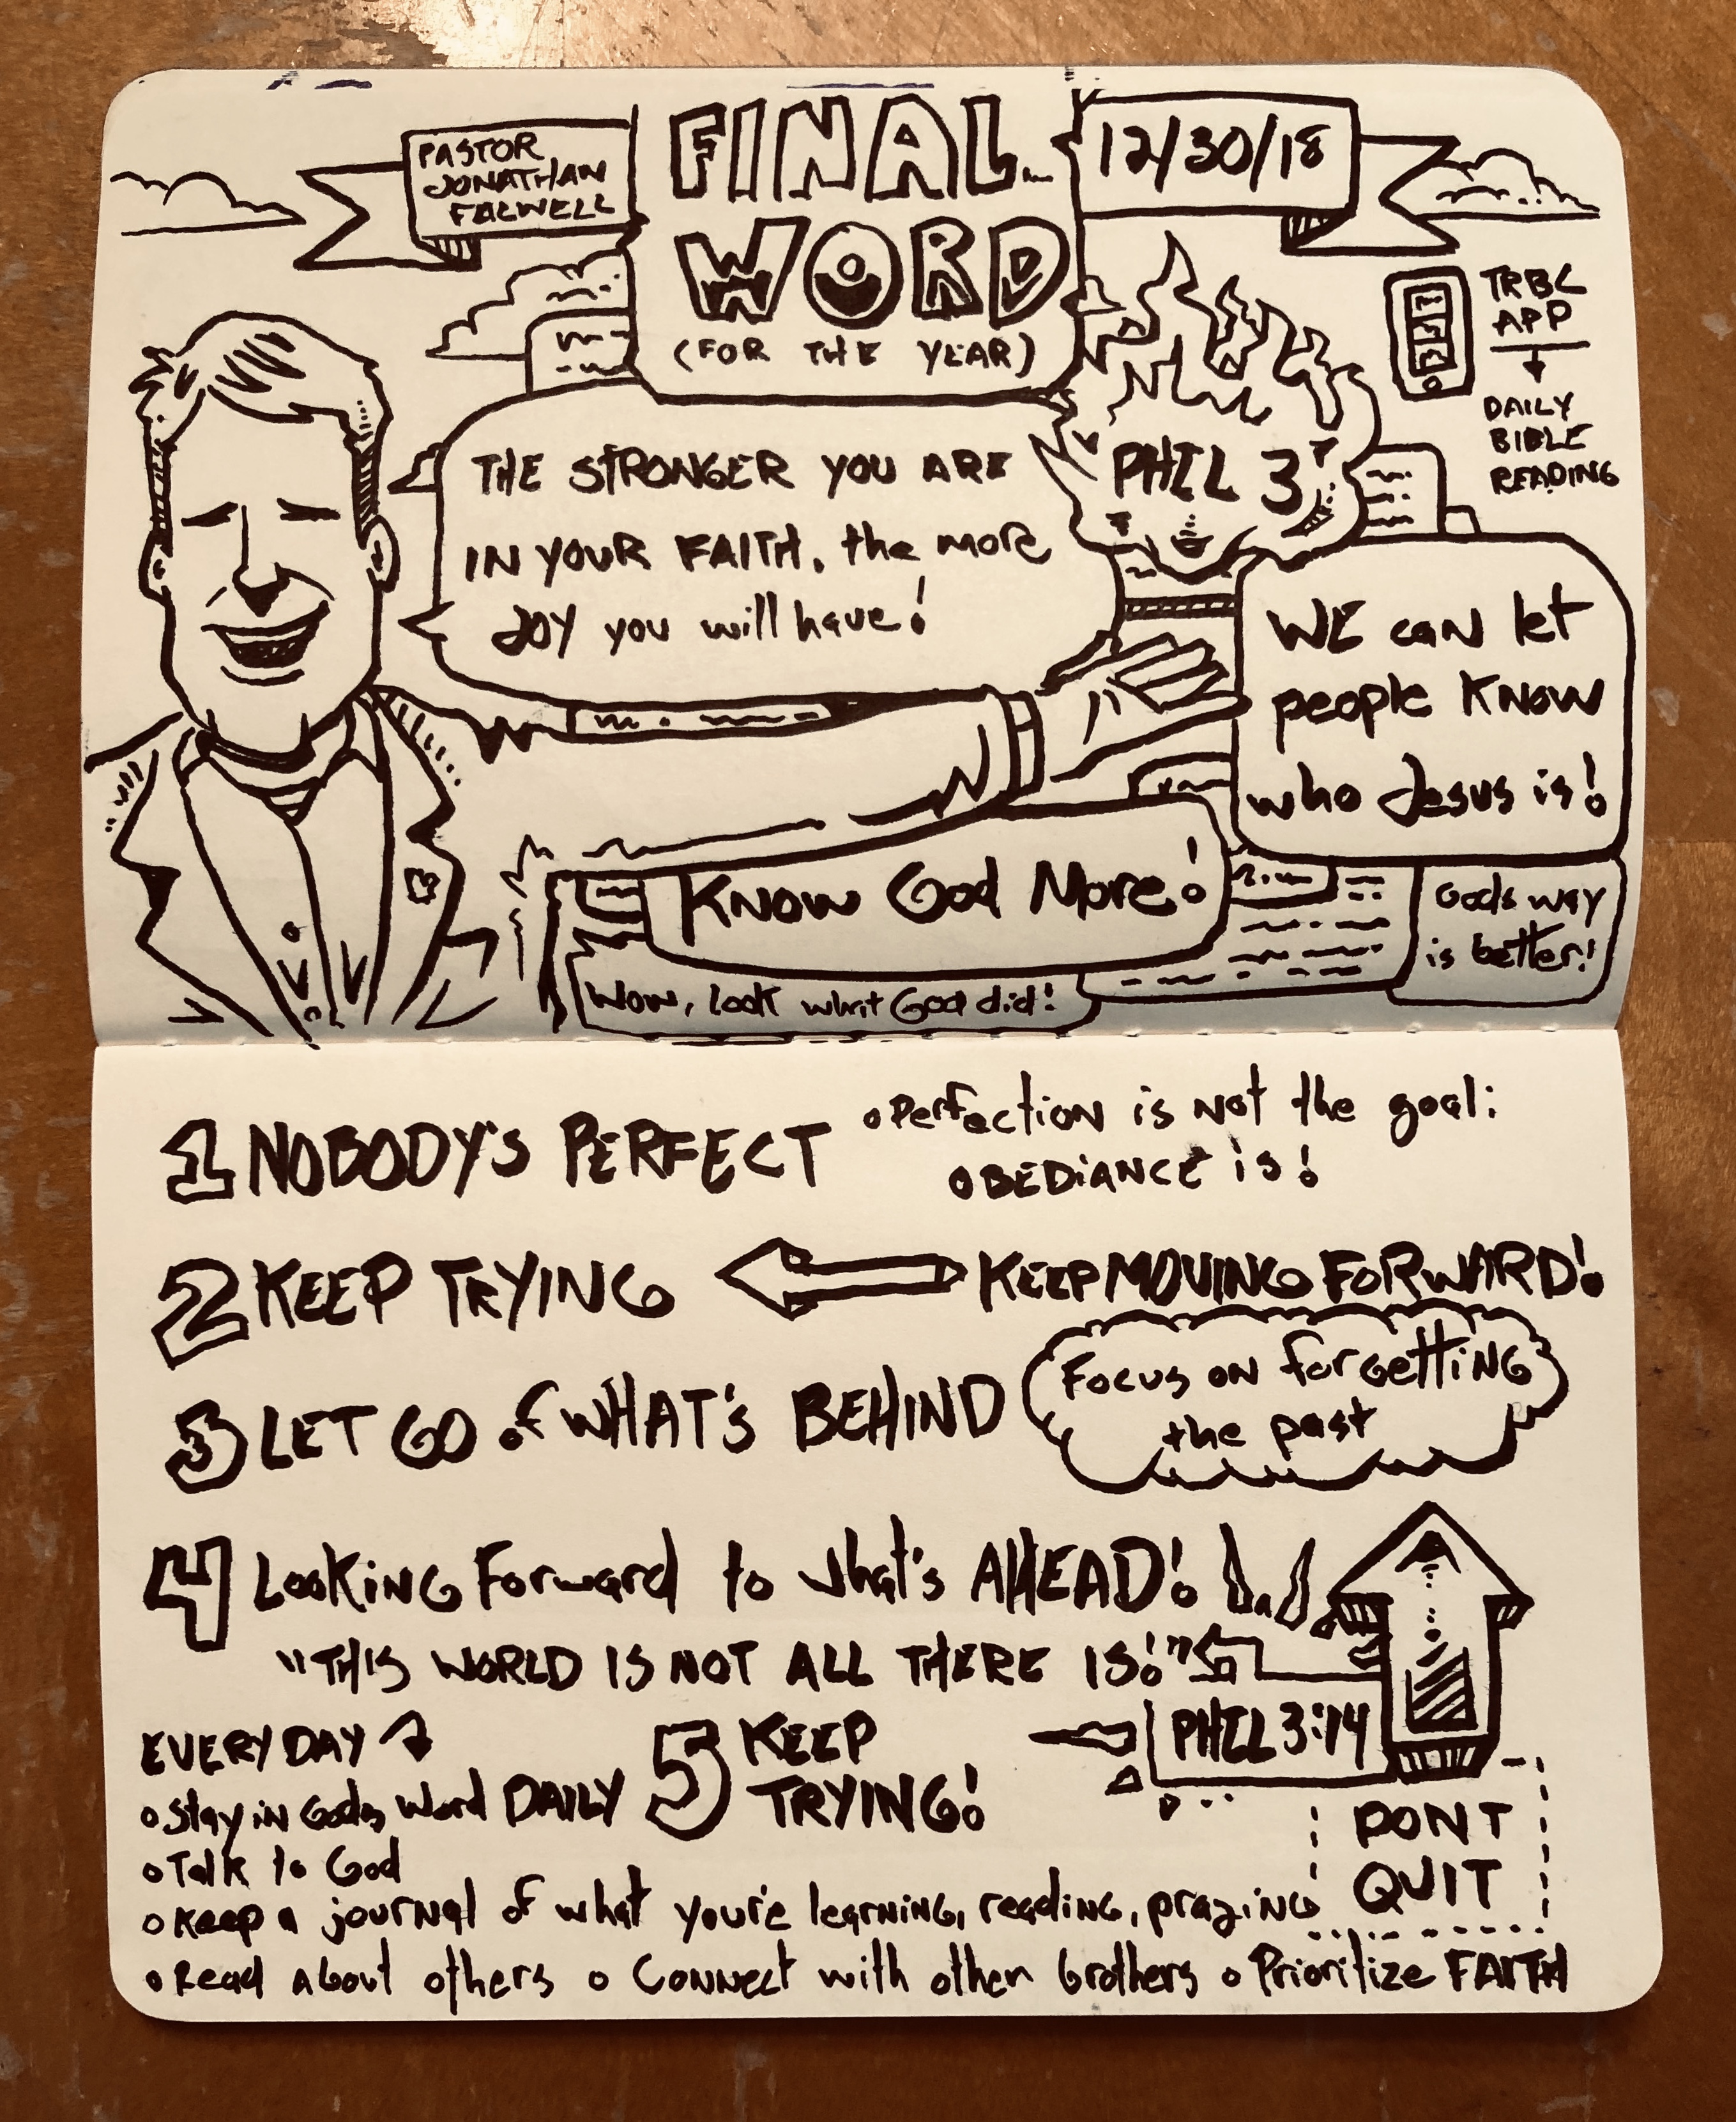 PASTOR
JONATHAN
FALWELL
FINAL...
WORD
(FOR THE YEAR)
12/30/18
TRBC
APP
DAILY
BIBLE
READING
THE STRONGER YOU ARE
IN YOUR FAITH, the more
JOY you will have!
PHIL 3
WE can let
people know
who Jesus is!
Know God More!
Gods way
is better!
Wow, look what God did!
1 NOBODY'S PERFECT
Perfection is not the goal:
OBEDIANCE is!
2 KEEP TRYING
KEEP MOVING FORWARD!
3 LET GO of WHAT'S BEHIND
Focus on forgetting
the past
4 Looking Forward to what's AHEAD!
"THIS WORLD IS NOT ALL THERE IS!"
PHIL 3:14
EVERY DAY
Stay in Gods Word DAILY
Talk to God
5 KEEP
TRYING!
DONT
QUIT
Keep a journal of what you're learning, reading, praying
Read about others o Connect with other brothers o Prioritize FAITH